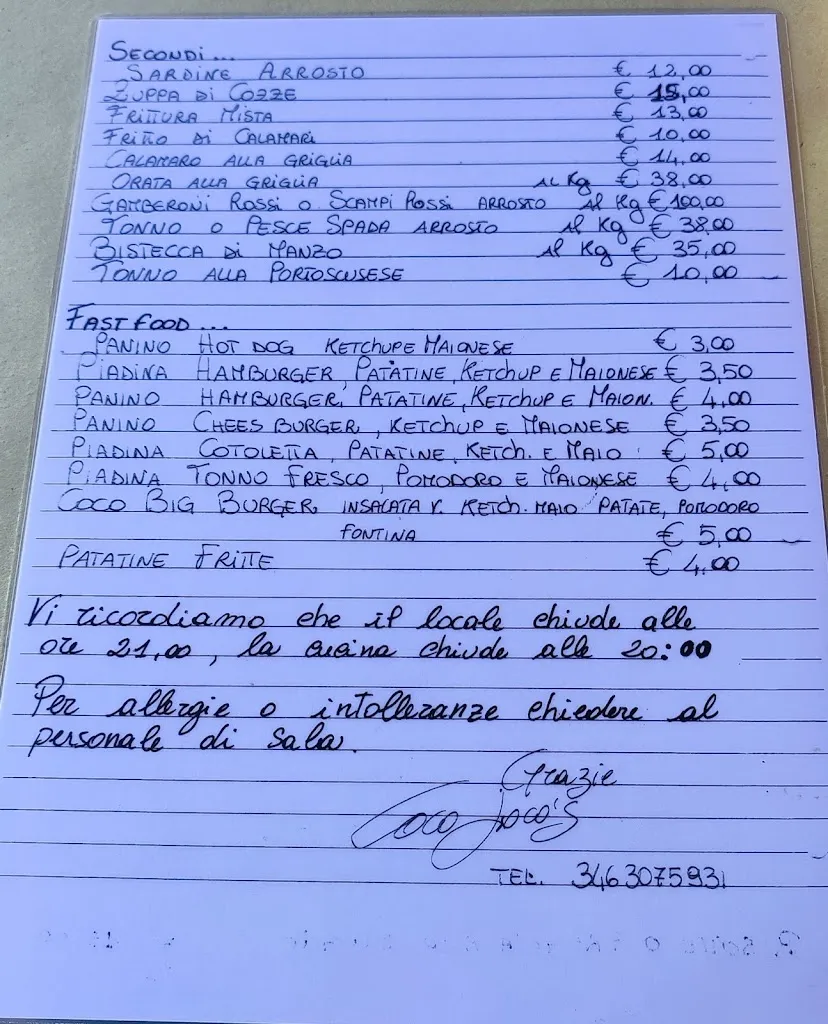 SECONDI...
SARDINE ARROSTO € 12,00
ZUPPA DI COZZE € 15,00
FRITTURA MISTA € 13,00
FRITTO DI CALAMARI € 10,00
CALAMARO ALLA GRIGLIA € 14,00
ORATA ALLA GRIGLIA AL Kg € 38,00
GAMBERONI ROSSI O SCAMPI ROSSI ARROSTO Al Kg € 100,00
TONNO O PESCE SPADA ARROSTO Al Kg € 38,00
BISTECCA DI MANZO Al Kg € 35,00
TONNO ALLA PORTOSCUSESE € 10,00
FAST FOOD...
PANINO HOT DOG KETCHUP E MAIONESE € 3,00
PIADINA HAMBURGER, PATATINE, KETCHUP E MAIONESE € 3,50
PANINO HAMBURGER, PATATINE, KETCHUP E MAION. € 4,00
PANINO CHEES BURGER, KETCHUP E MAIONESE € 3,50
PIADINA COTOLETTA, PATATINE, KETCH. E MAIO € 5,00
PIADINA TONNO FRESCO, POMODORO E MAIONESE € 4,00
COCO BIG BURGER, INSALATA V. KETCH. MAIO PATATE, POMODORO
FONTINA € 5,00
PATATINE FRITTE € 4,00
Vi ricordiamo che il locale chiude alle
ore 21,00, la cucina chiude alle 20:00
Per allergie o intolleranze chiedere al
personale di sala.
Grazie
Coco Loco's
TEL. 3463075931